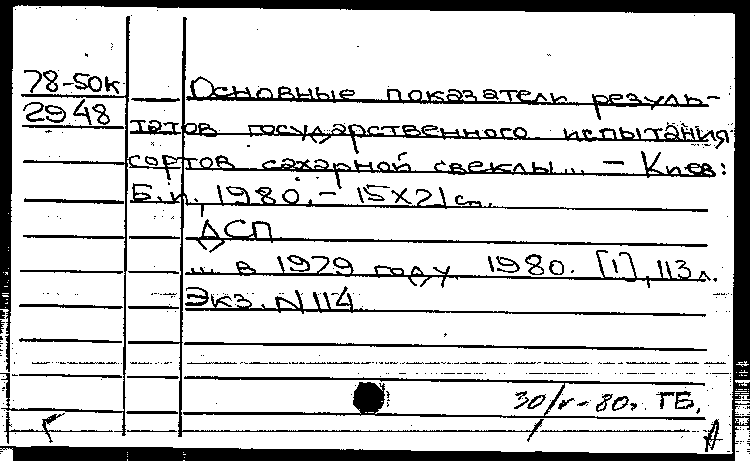 78-50к
2948
Основные показатели резуль-
татов государственного испытания
сортов сахарной свеклы... - Киев:
Б.и., 1980. - 15х21 см.
ДСП
... в 1979 году. 1980. [1], 113 л.
Экз. N 114
30/V-80. ТБ.